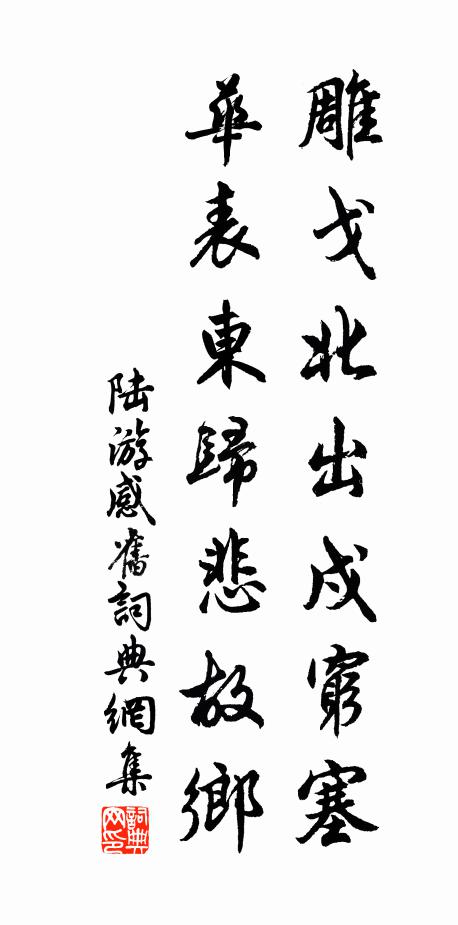 雕戈北出戍窮塞
華表東歸悲故鄉
陆游感舊詞典網集
詞典
网印